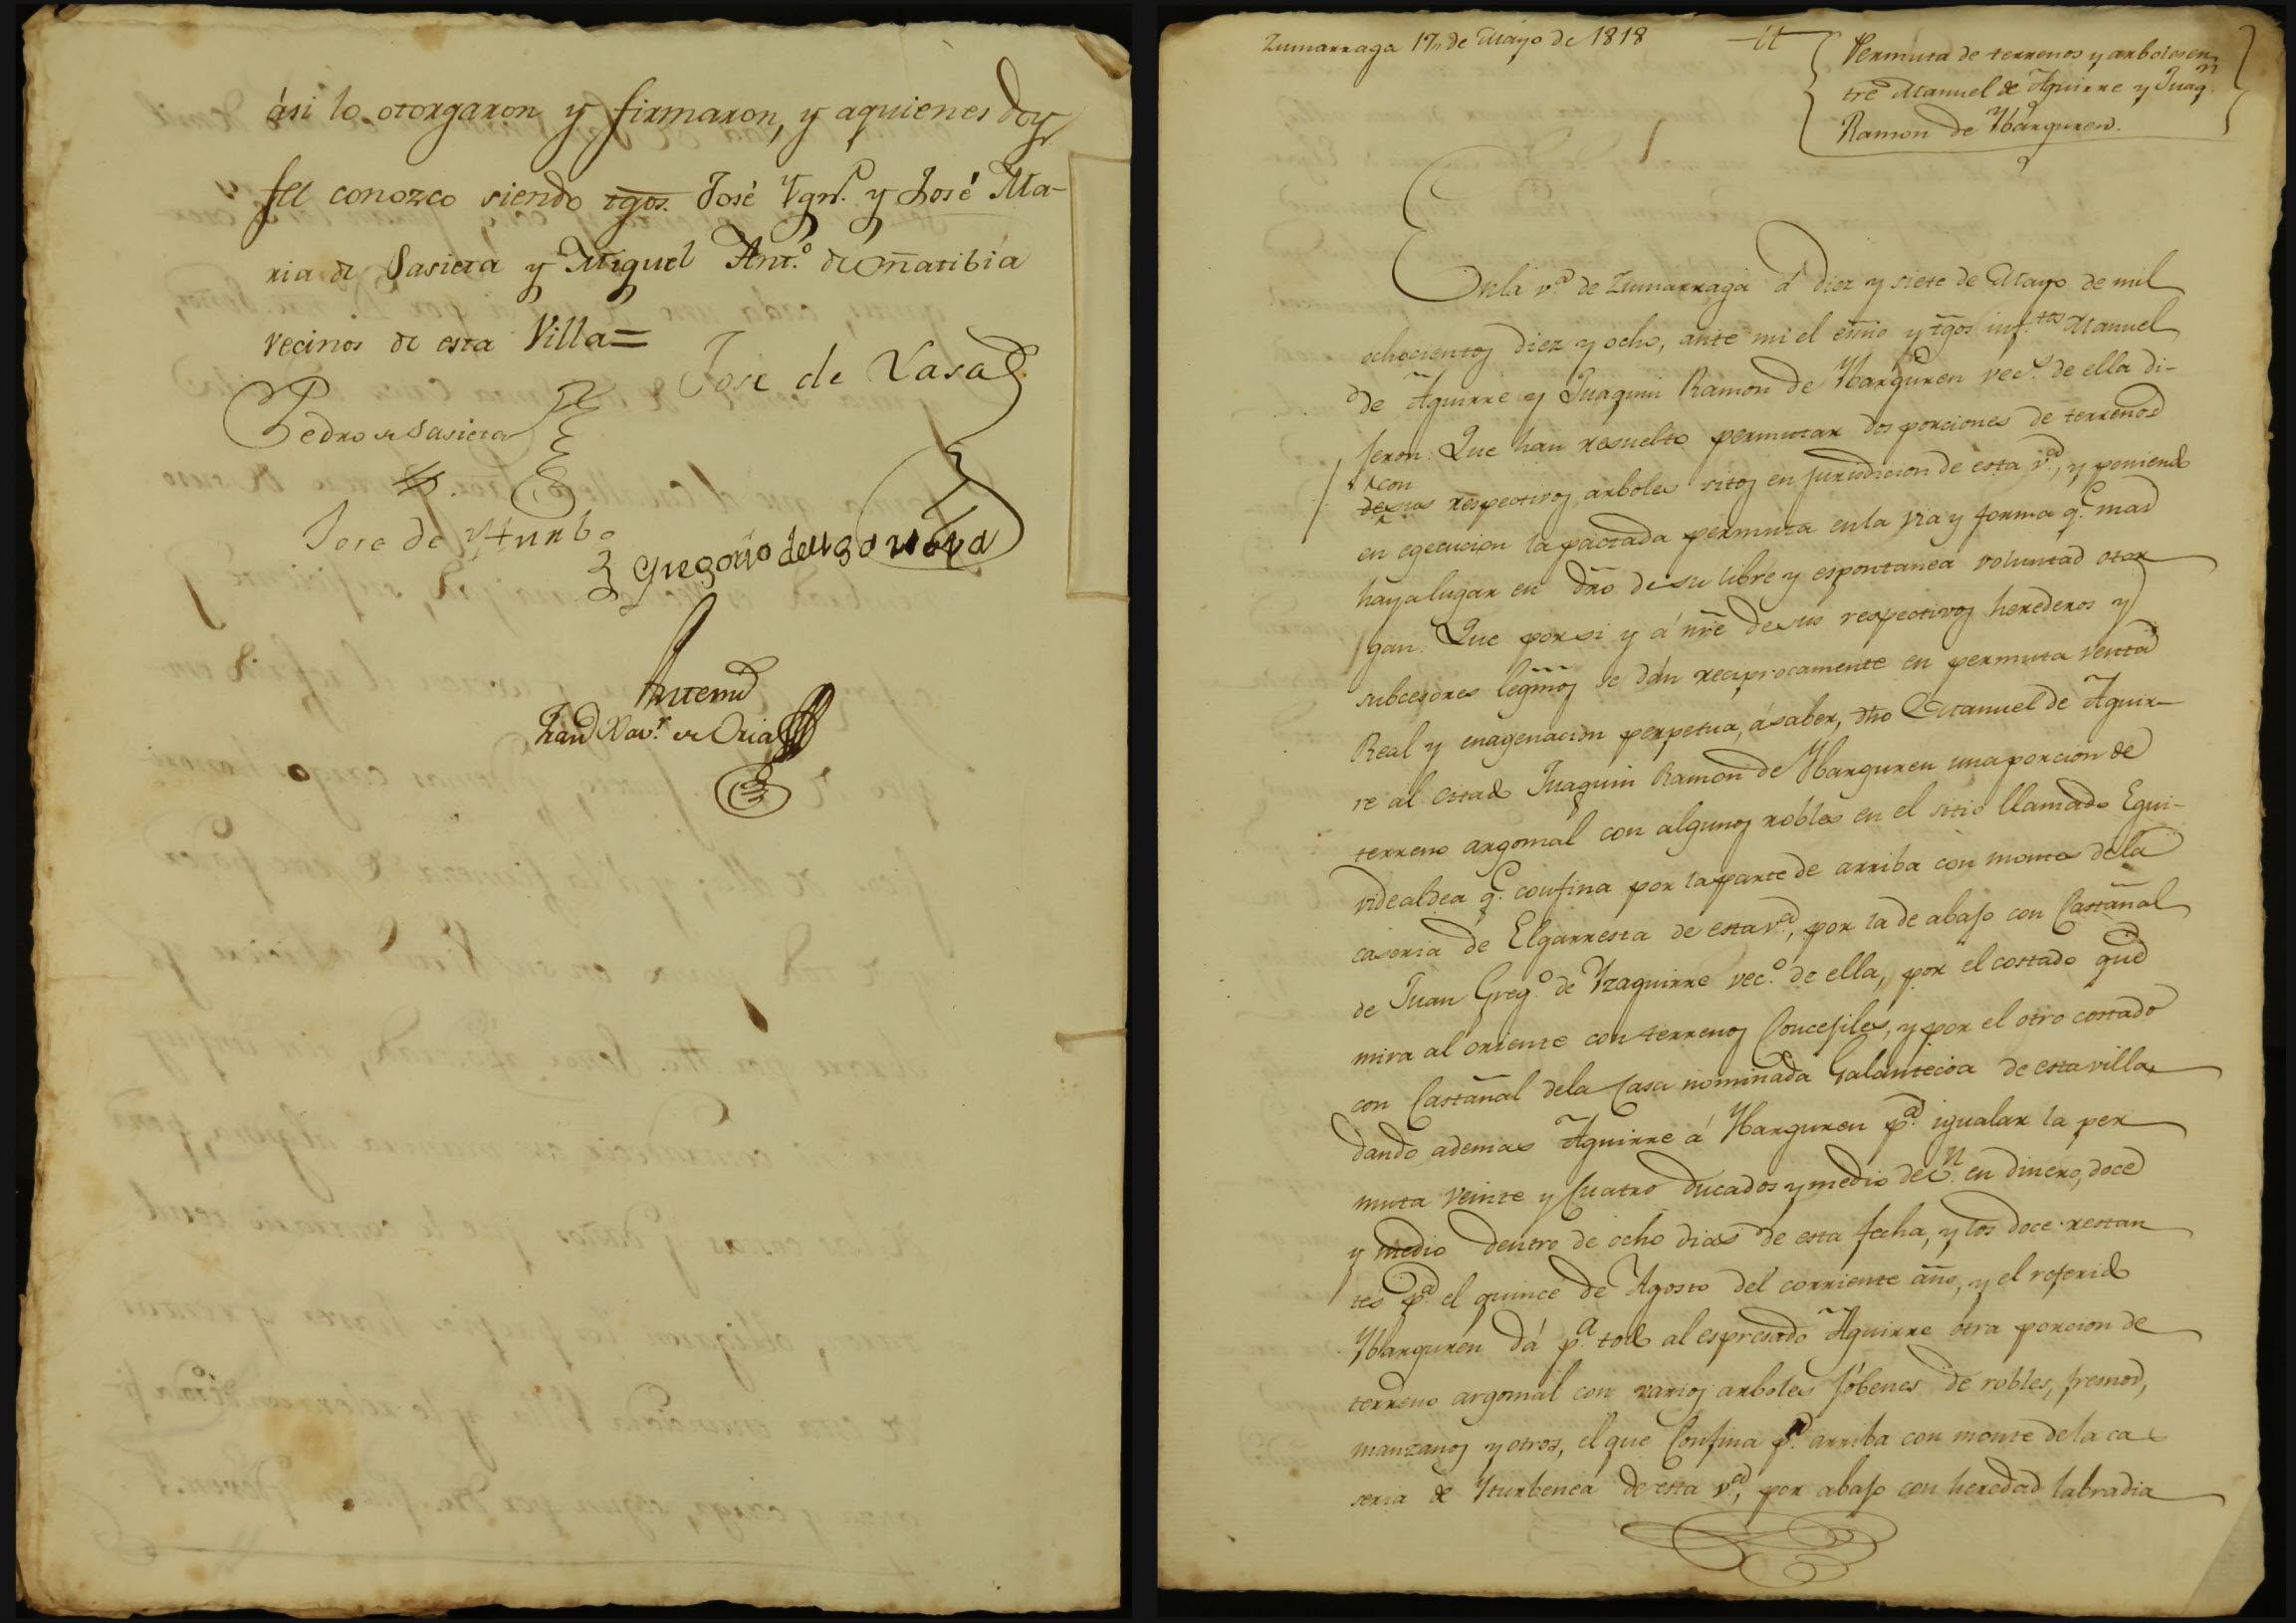 ási lo otorgaron y firmaron, y aquienes doy
feé conozco siendo tgos. José Ygn.º y José Ma-
ria de Sasieta y Miguel Ant.º de Oñatibia
vecinos de esta Villa=
Jose de Lasa
Pedro de Sasieta
Jose de Yturbe
Gregorio de
Antemi
Fran.co Xav.r de Oria
Zumarraga 17,, de Mayo de 1818
Permuta de terrenos y arboles en
tre Manuel de Aguirre y Juaq.n
Ramon de Ybarguren.
Enla v.ª de Zumarraga á diez y siete de Mayo de mil
ochocientos diez y ocho, ante mi el esño y tgos inf.tos Manuel
de Aguirre y Juaquin Ramon de Ybarguren vec.s de ella di-
jeron: Que han resuelto permutar dos porciones de terrenos
con
de sus respectivos arboles sitos en jurisdicion de esta v.ª, y poniendo
en egecucion la pactada permuta en la via y forma q.e mas
haya lugar en dr̃o de su libre y espontanea voluntad otor
gan: Que por si y á nr̃e de sus respectivos herederos y
subcesores legm̃os se dán reciprocamente en permuta venta
Real y enagenacion perpetua, á saber, dho Manuel de Aguir-
re al citado Juaquin Ramon de Ybarguren una porcion de
terreno argomal con algunos robles en el sitio llamado Egui-
videaldea q.e confina por la parte de arriba con montes dela
caseria de Elgarresta de esta v.ª, por la de abajo con Castañal
de Juan Greg.º de Yzaguirre vec.º de ella, por el costado que
mira al oriente con terrenos Concejiles, y por el otro costado
con Castañal dela Casa nominada Galantecoa de esta villa,
dando ademas Aguirre á Ybarguren p.ª igualar la per
muta veinte y Cuatro ducados y medio de v.n en dinero, doce
y medio dentro de ocho dias de esta fecha, y los doce restan
tes p.ª el quince de Agosto del corriente año, y el referido
Ybarguren dá p.ª todo al espresado Aguirre otra porcion de
terreno argomal con varios arboles jóbenes de robles, fresnos,
manzanos y otros, el que Confina p.r arriba con monte de la ca
seria de Yturbenea de esta v.ª, por abajo con heredad labradia